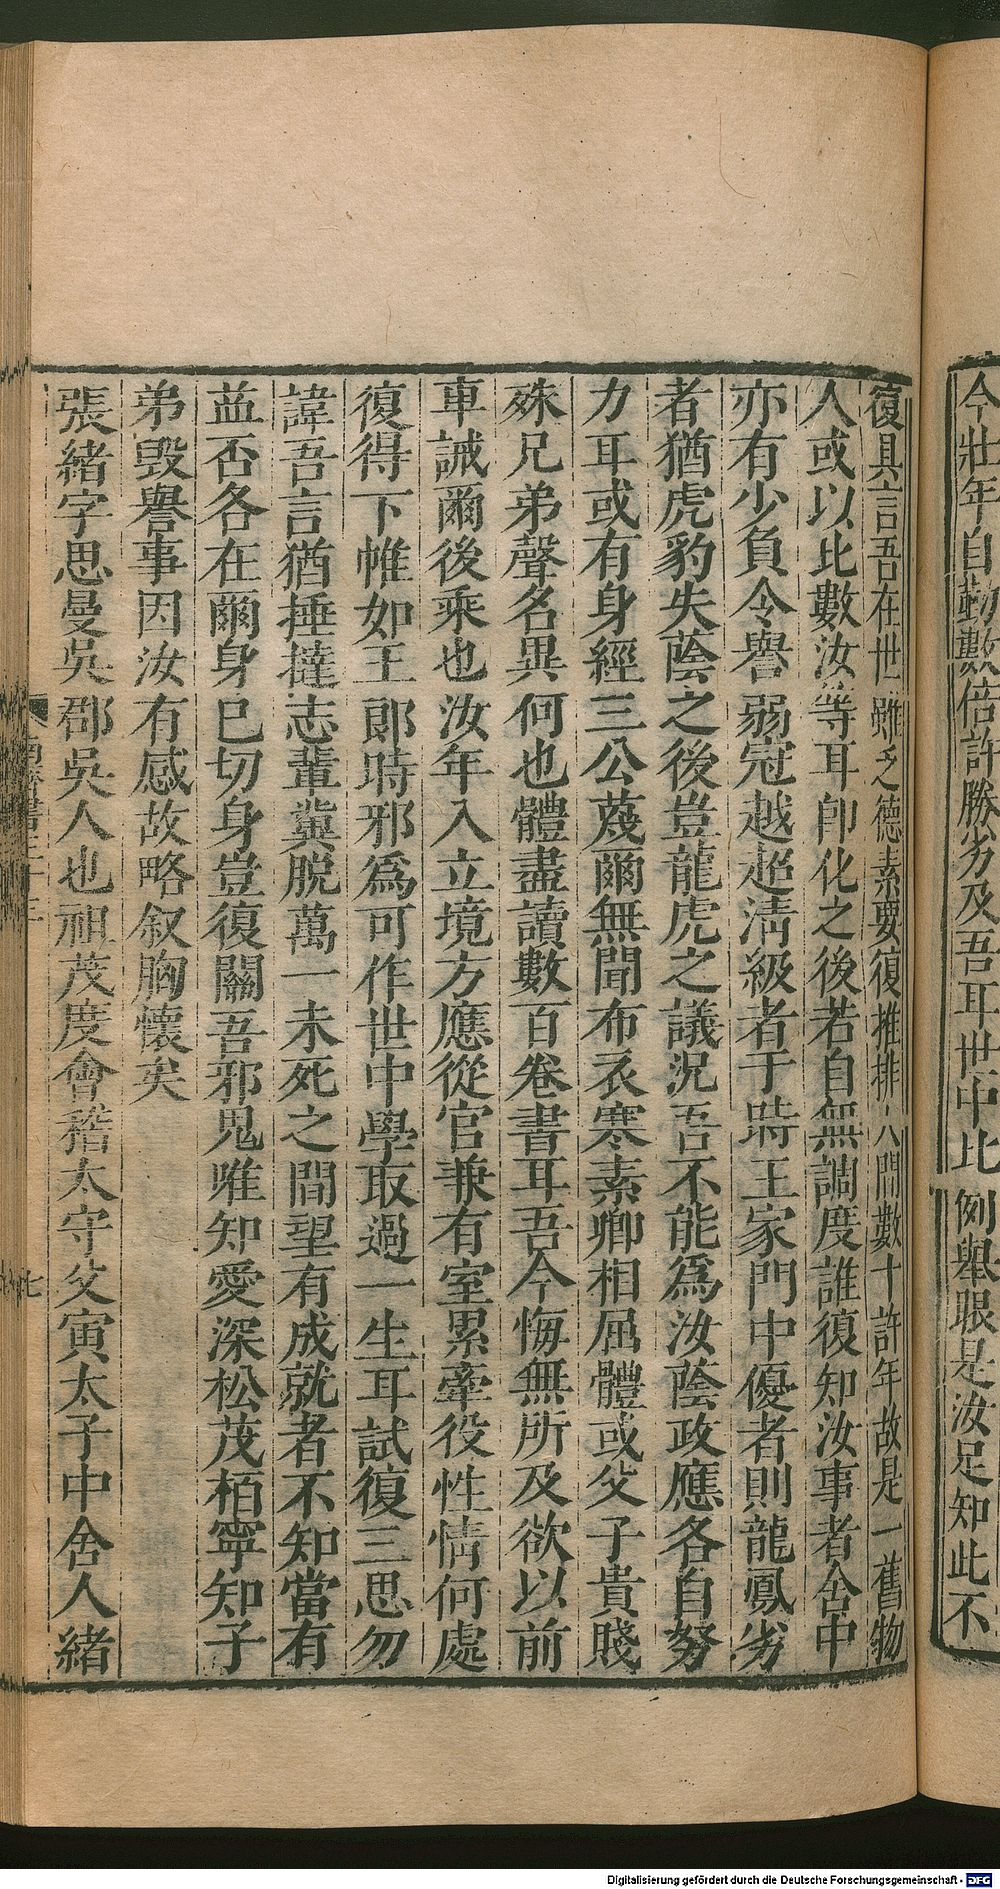 今壯年自勤數倍許勝劣及吾耳世中比例舉眼是汝足知此不
復具言吾在世雖乏德素要復推排人間數十許年故是一舊物
人或以比數汝等耳即化之後若自無調度誰復知汝事者舍中
亦有少負令譽弱冠越超淸級者于時王家門中優者則龍鳳劣
者猶虎豹失蔭之後豈龍虎之議況吾不能爲汝蔭政應各自努
力耳或有身經三公蔑爾無聞布衣寒素卿相屈體或父子貴賤
殊兄弟聲名異何也體盡讀數百卷書耳吾今悔無所及欲以前
車誡爾後乘也汝年入立境方應從官兼有室累牽役性情何處
復得下帷如王郎時邪爲可作世中學取過一生耳試復三思勿
諱吾言猶捶撻志輩冀脫萬一未死之間望有成就者不知當有
益否各在爾身已切身豈復關吾邪鬼唯知愛深松茂栢寧知子
弟毀譽事因汝有感故略叙胸懷矣
張緒字思曼吳郡吳人也祖茂度會稽太守父寅太子中舍人緒
南齊書三十三
七
Digitalisierung gefördert durch die Deutsche Forschungsgemeinschaft - DFG